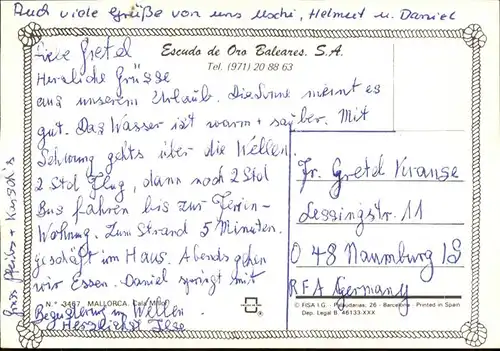 Auch viele Grüße von uns Uschi, Helmut u. Daniel
Escudo de Oro Baleares. S.A.
Tel. (971) 20 88 63
Liebe Gretel
Herzliche Grüsse
aus unserem Urlaub. Die Sonne meint es
gut. Das Wasser ist warm + sauber. Mit
Schwung gehts über die Wellen.
2 Std Flug, dann noch 2 Std
Bus fahren bis zur Ferien-
Wohnung. Zum Strand 5 Minuten.
Geschäft im Haus. Abends gehen
wir Essen. Daniel springt mit
Begeisterung in Wellen.
Herzlichst Ilse
Gruss
Fr. Gretel Krause
Lessingstr. 11
O 48 Naumburg /S
RFA Germany
N.º 3467. MALLORCA. Cala Millor
© FISA I.G. - Palaudarias, 26 - Barcelona - Printed in Spain
Dep. Legal B. 46133-XXX